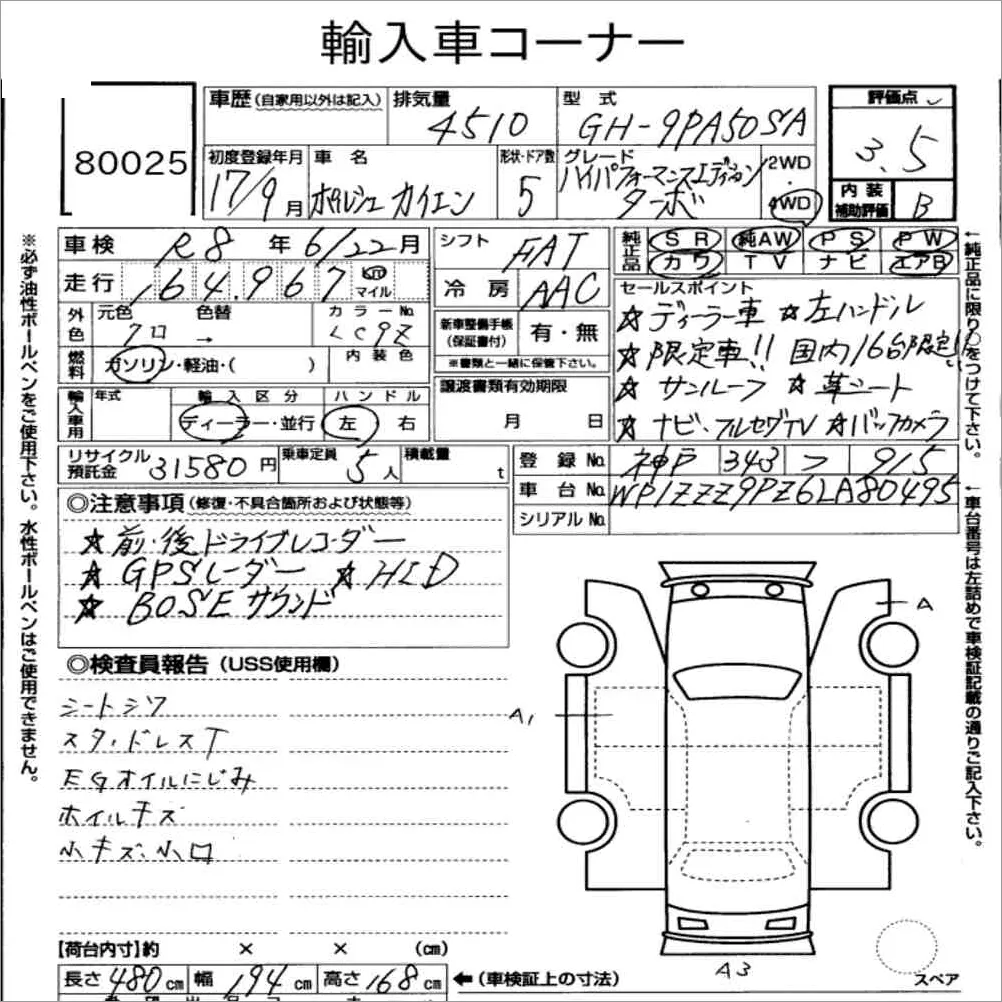 輸入車コーナー
80025
車歴 (自家用以外は記入)
排気量
4510
型式
GH-9PA50SA
評価点
3.5
初度登録年月
17/9月
車名
ポルシェ カイエン
形状・ドア数
5
グレード
ハイパフォーマンスエディション
ターボ
2WD
・
4WD
内装
補助評価
B
車検 R8年 6/22月
走行 164,967 km マイル
シフト FAT
冷房 AAC
純正品
SR 純AW PS PW
カワ TV ナビ エアB
外色
元色 クロ
色替 →
カラーNo. LC9Z
燃料
ガソリン・軽油・( )
内装色
新車整備手帳
(保証書付)
有・無
※書類と一緒に保管下さい。
セールスポイント
☆ディーラー車 ☆左ハンドル
☆限定車!! 国内16台限定!!
☆サンルーフ ☆革シート
☆ナビ、フルセグTV ☆バックカメラ
輸入車用
年式
輸入区分
ディーラー・並行
ハンドル
左 右
譲渡書類有効期限
月 日
リサイクル
預託金
31580円
乗車定員
5人
積載量
t
登録No. 神戸 343 フ 915
車台No. WP1ZZZ9PZ6LA80495
シリアルNo.
◎注意事項 (修復・不具合箇所および状態等)
☆前・後ドライブレコーダー
☆GPSレーダー ☆HID
☆BOSEサウンド
◎検査員報告 (USS使用欄)
シートシワ
スタッドレスT
EGオイルにじみ
ホイルキズ
小キズ、小凹
A
A1
A3
スペア
【荷台内寸】約 × × (cm)
長さ 480cm 幅 194cm 高さ 168cm
←(車検証上の寸法)
※必ず油性ボールペンをご使用下さい。水性ボールペンはご使用できません。
←純正品に限り○をつけて下さい。
←車台番号は左詰めで車検証記載の通りご記入下さい。